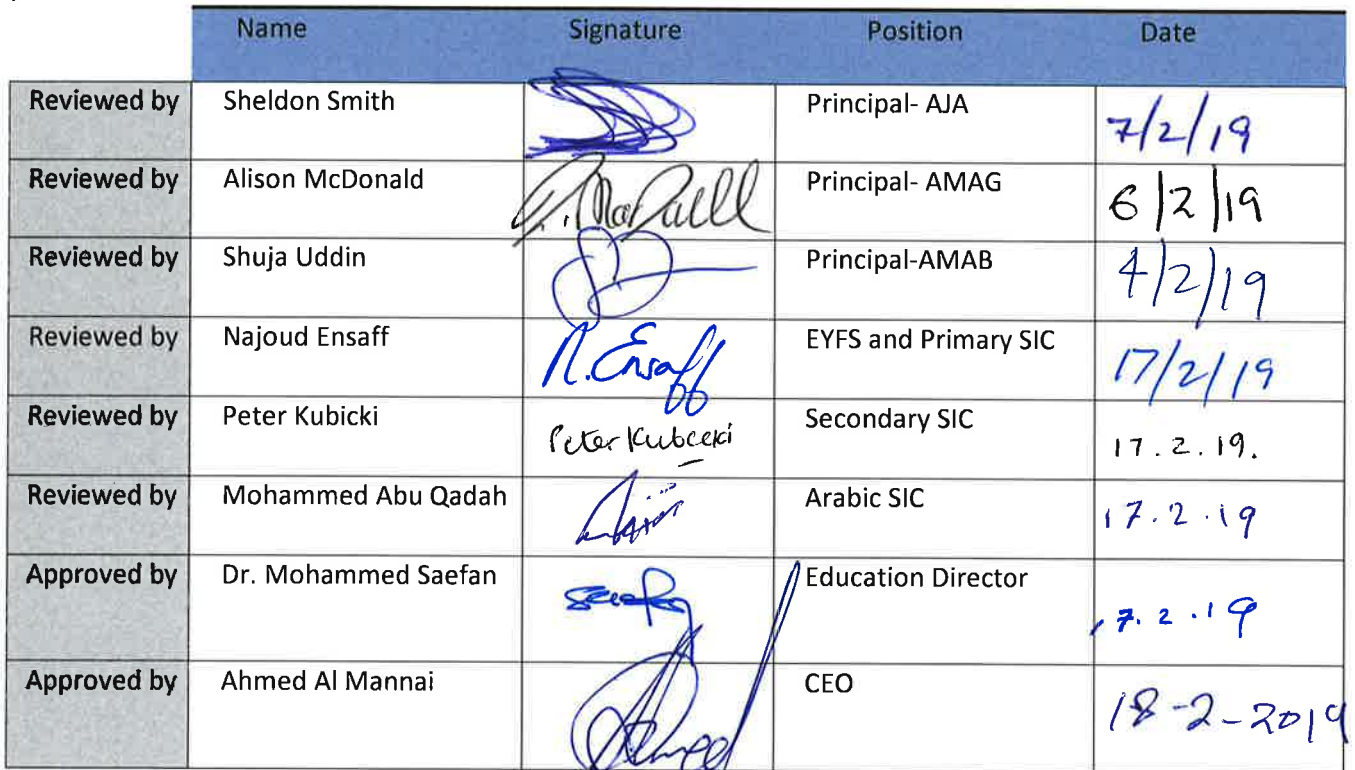 Name Signature Position Date
Reviewed by Sheldon Smith Principal- AJA 7/2/19
Reviewed by Alison McDonald Principal- AMAG 6/2/19
Reviewed by Shuja Uddin Principal-AMAB 4/2/19
Reviewed by Najoud Ensaff N. Ensaff EYFS and Primary SIC 17/2/19
Reviewed by Peter Kubicki Peter Kubicki Secondary SIC 17.2.19.
Reviewed by Mohammed Abu Qadah Arabic SIC 17.2.19
Approved by Dr. Mohammed Saefan Education Director 17.2.19
Approved by Ahmed Al Mannai Ahmed CEO 18-2-2019